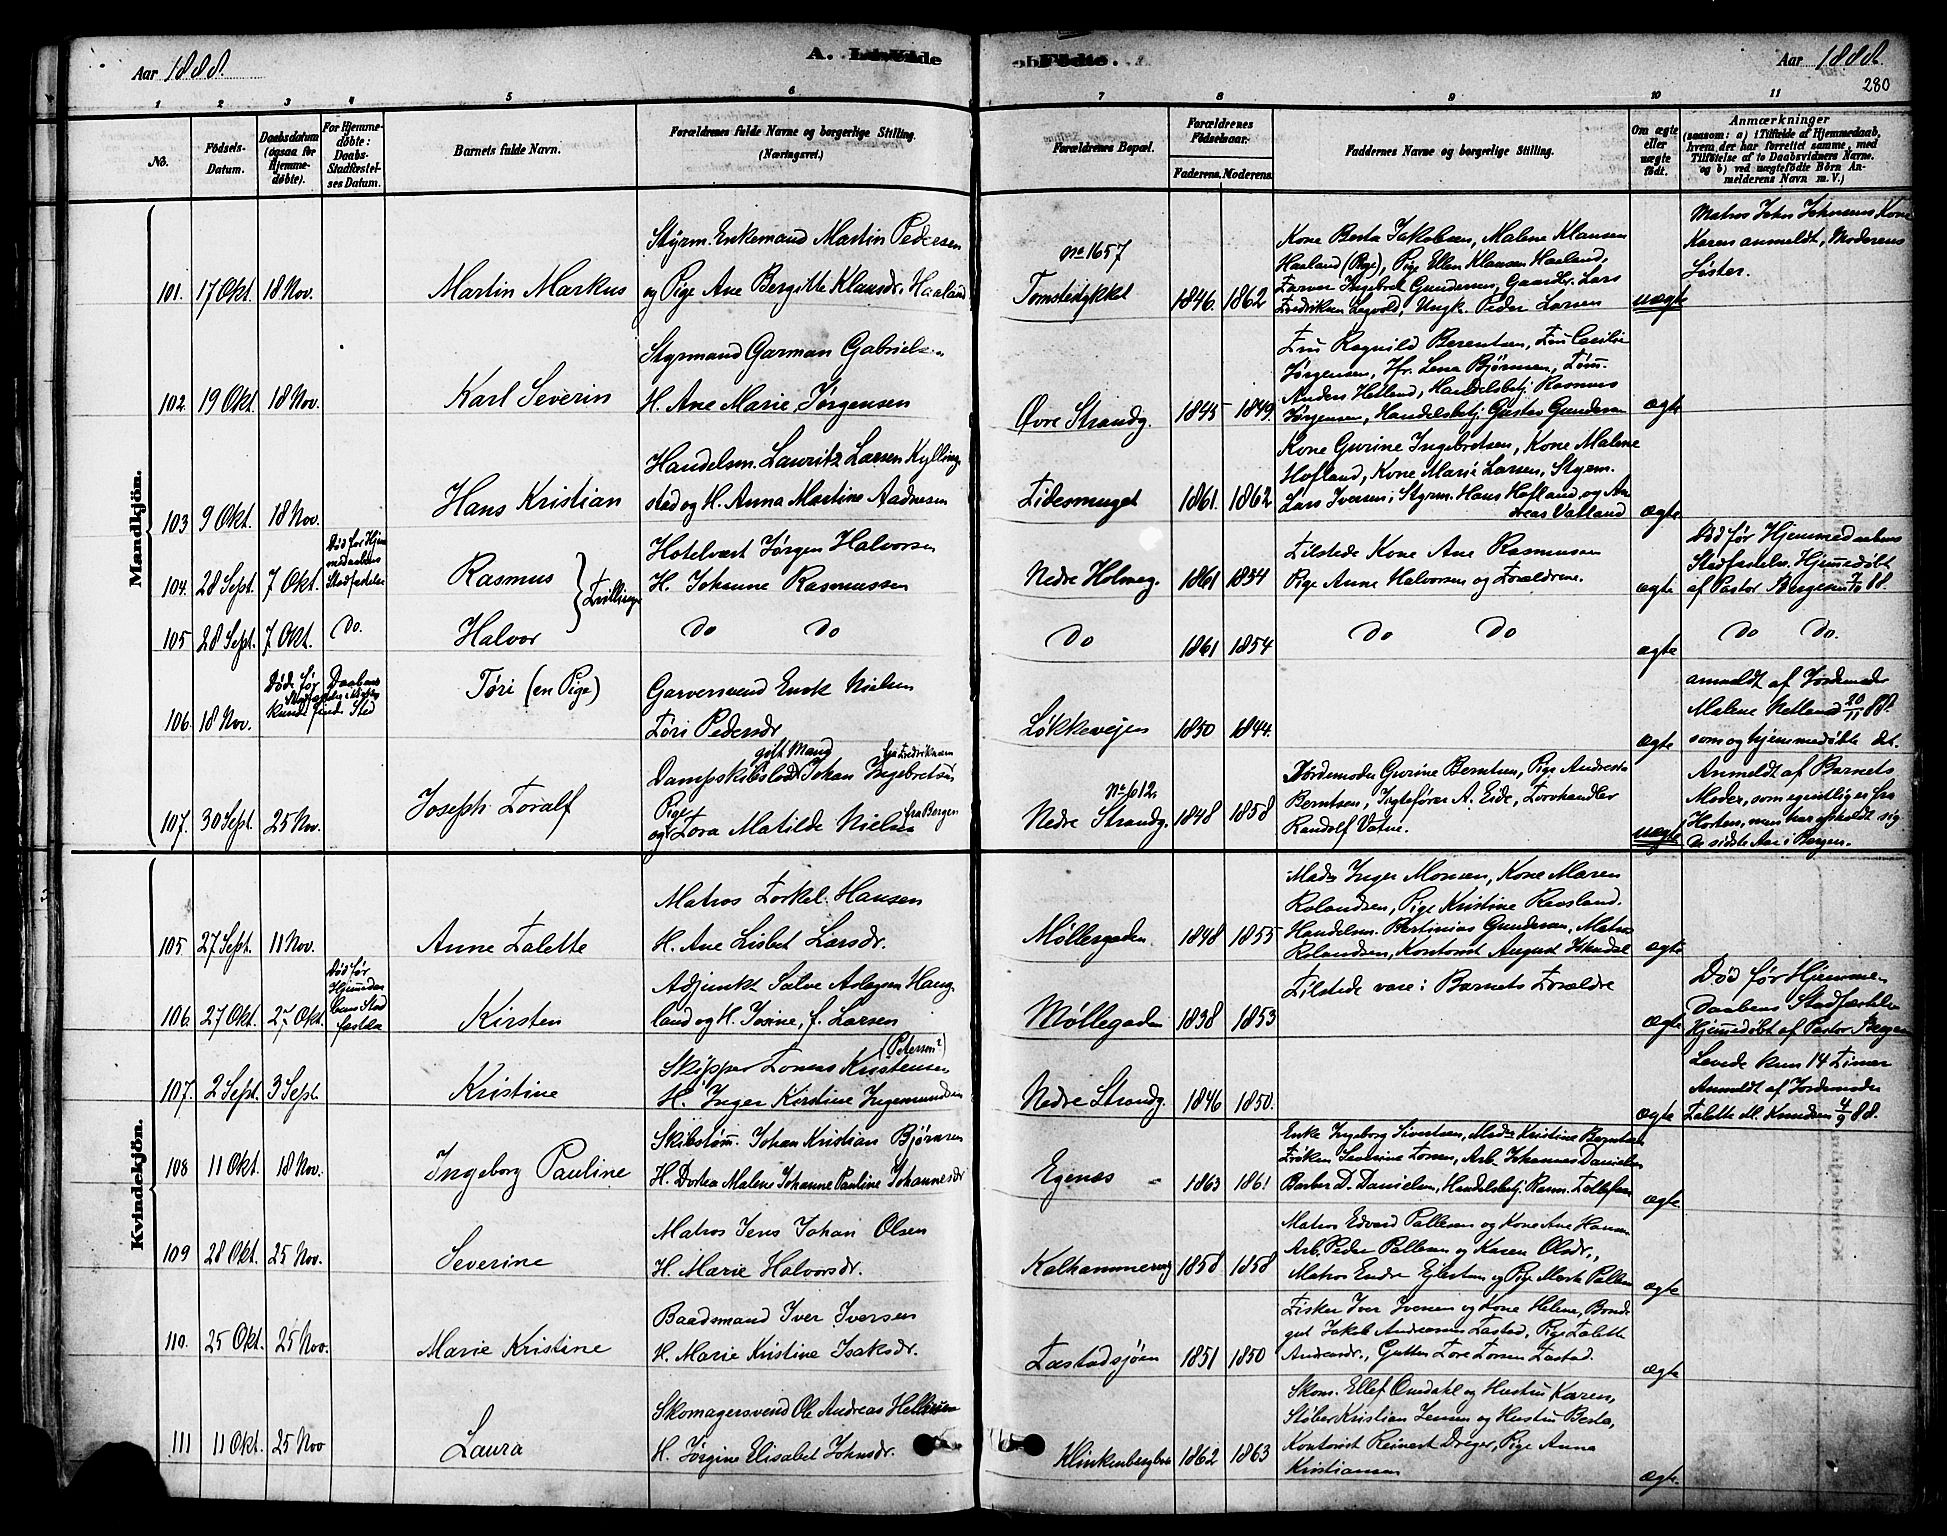 Aar 1888.
A. Levende
Fødte.
Aar 1888.
280
1 2 3 4 5 6 7 8 9 10 11
No.
Födsels-Datum.
Daabsdatum (ogsaa for Hjemme-döbte).
For Hjemme-döbte: Daabs-Stadfæstel-ses Datum.
Barnets fulde Navn.
Forældrenes fulde Navne og borgerlige Stilling. (Næringsvei.)
Forældrenes Bopæl.
Forældrenes Födselsaar.
Faderens. Moderens.
Faddernes Navne og borgerlige Stilling.
Om ægte eller uægte födt.
Anmærkninger
(saasom: a) i Tilfælde af Hjemmedaab,
hvem der har forrettet samme, med
Tilföielse af to Daabsvidners Navne.
og b) ved uægtefödte Börn An-
melderens Navn m. V.)
Mandkjön.
101. 17 Okt. 18 Nov.
Martin Markus
Styrm. Enkemand Martin Pedersen
og Pige Ane Bergitte Klausdr. Haaland
No 1657
Tomstestykket
1846. 1862
Kone Berta Jakobsen, Malene Klausen
Haaland (Pige), Pige Ellen Klausen Haaland,
Farver Ingebret Gundersen, Gaardbr. Lars
Fredriksen Legvold, Ungk. Peder Larsen
uægte
Matros John Johnsens Kone
Karen anmeldt, Moderens
Søster.
102 19 Okt. 18 Nov.
Karl Severin
Styrmand Garman Gabrielsen
H. Ane Marie Jørgensen
Øvre Strandg.
1845 1849.
Fru Ragnild Berentsen, Fru Cecilie
Jørgensen, Jfr. Lena Bjørnsen, Tøm.
Anders Hetland, Handelsbetj. Rasmus
Jørgensen, Handelsbetj. Gustav Gundersen
ægte
103 9 Okt. 18 Nov.
Hans Kristian
Handelsm. Lauritz Larsen Kylling-
stad og H. Anna Martine Aadnesen
Fidesmuget
1861. 1862
Kone Gurine Ingebretsen, Kone Malene
Hofland, Kone Marie Larsen, Styrm.
Lars Iversen, Styrm. Hans Hofland og An-
dreas Vatland
ægte
104. 28 Sept. 7 Okt.
Død før Hjem
medaabens
Stadfæstelse
Rasmus
Tvillinger
Hotelvært Jørgen Halvorsen
H. Johanne Rasmussen
Nedre Holmeg.
1861 1854
Tilstede Kone Ane Rasmussen
Pige Anne Halvorsen og Forældrene.
ægte
Død før Hjemmedaabens
Stadfæstelse. Hjemmedøbt
af Pastor Bergesen 7/10 88.
105 28 Sept. 7 Okt. Do.
Halvor
Do Do
Do
1861 1854
Do Do
ægte
Do Do.
106. 18 Nov.
Døde før Daabens
Stadfæstelse i Kirken
kunde finde Sted
Tøri (en Pige)
Garversvend Enok Nielsen
Tøri Pedersdr
Løkkeveien
1850 1844.
ægte
anmeldt af Jordemoder
Malene Netland 20/11 88.
som og hjemmedøbte det.
107. 30 Sept. 25 Nov.
Joseph Toralf
gift Mand fra Fredriksværn
Dampskibslods Johan Ingebretsen
Pige
og Tora Matilde Nielsen fra Bergen
No 612.
Nedre Strandg.
1848 1858
Jordemoder Gurine Berntsen, Pige Andrea
Berntsen, Togtefører A. Eide, Torvhandler
Randolf Vatne.
uægte
Anmeldt af Barnets
Moder, som egentlig er fra
Horten, men har opholdt sig
de sidste Aar i Bergen.
Kvindekjön.
105 27 Sept. 11 Nov.
Anne Talette
Matros Torkel Hansen
H. Ane Lisbet Larsdr.
Møllegaden
1848 1855
Mad. Inger Monsen, Kone Maren
Rolandsen, Pige Kristine Ravsland.
Handelsm. Bertinius Gundersen, Matros
Rolandsen, Kontorist August Iskedal
ægte
106. 27 Okt. 27 Okt.
Død før
Hjemmedaa
bens Stad
fæstelse
Kirsten
Adjunkt Salve Aslagsen Haug-
land og H. Josine, f. Larsen
Møllegaden
1838 1853
Tilstede vare: Barnets Forældre
ægte
Død før Hjemme-
Daabens Stadfæstelse
Hjemmedøbt af Pastor Bergesen
107. 2 Sept. 3 Sept.
Kristine
(Petersen?)
Skipper Tønnes Kristensen
H. Inger Kirstine Ingemundsen
Nedre Strandg.
1846 1850.
ægte
Levede kun 14 Timer
Anmeldt af Jordemoder
Talette M. Knudsen 4/9 88.
108 11 Okt. 18 Nov.
Ingeborg Pauline
Skibstøm. Johan Kristian Bjørnsen
H. Dortea Malene Johanne Pauline Johannesdr
Egenæs
1863 1861
Enke Ingeborg Sivertsen, Mad. Kristine Berntsen
Frøken Severine Torsen, Arb. Johannes Danielsen
Barber D. Danielsen, Handelsbetj. Rasm. Tollefsen
ægte
109 28 Okt. 25 Nov.
Severine
Matros Jens Johan Olsen
H. Marie Halvorsdr.
Kalhammerveg
1858 1858
Matros Edvard Pallesen og Kone Ane Hansen
Arb. Peder Pallesen og Karen Olsdr.,
Matros Endre Eilertsen og Pige Marta Pallesen
ægte
110. 25 Okt. 25 Nov.
Marie Kristine
Baadsmand Iver Iversen
H. Marie Kristine Isaksdr.
Tastadsjøen
1851 1850
Fisker Iver Iversen og Kone Helene, Bonde-
gut Jakob Andreasen Tastad, Pige Talette
Andreasdr., Gutten Tore Torsen Tastad.
ægte
111 11 Okt. 25 Nov
Laura
Skomagersvend Ole Andreas Hellesen
H. Jørgine Elisabet Johnsdr.
Klinkenbergbak
1862 1863
Skom. Ellef Omdahl og Hustru Karen,
Støber Kristian Jensen og Hustru Berta,
Kontorist Reinert Dreyer, Pige Anna
Kristiansen
ægte.